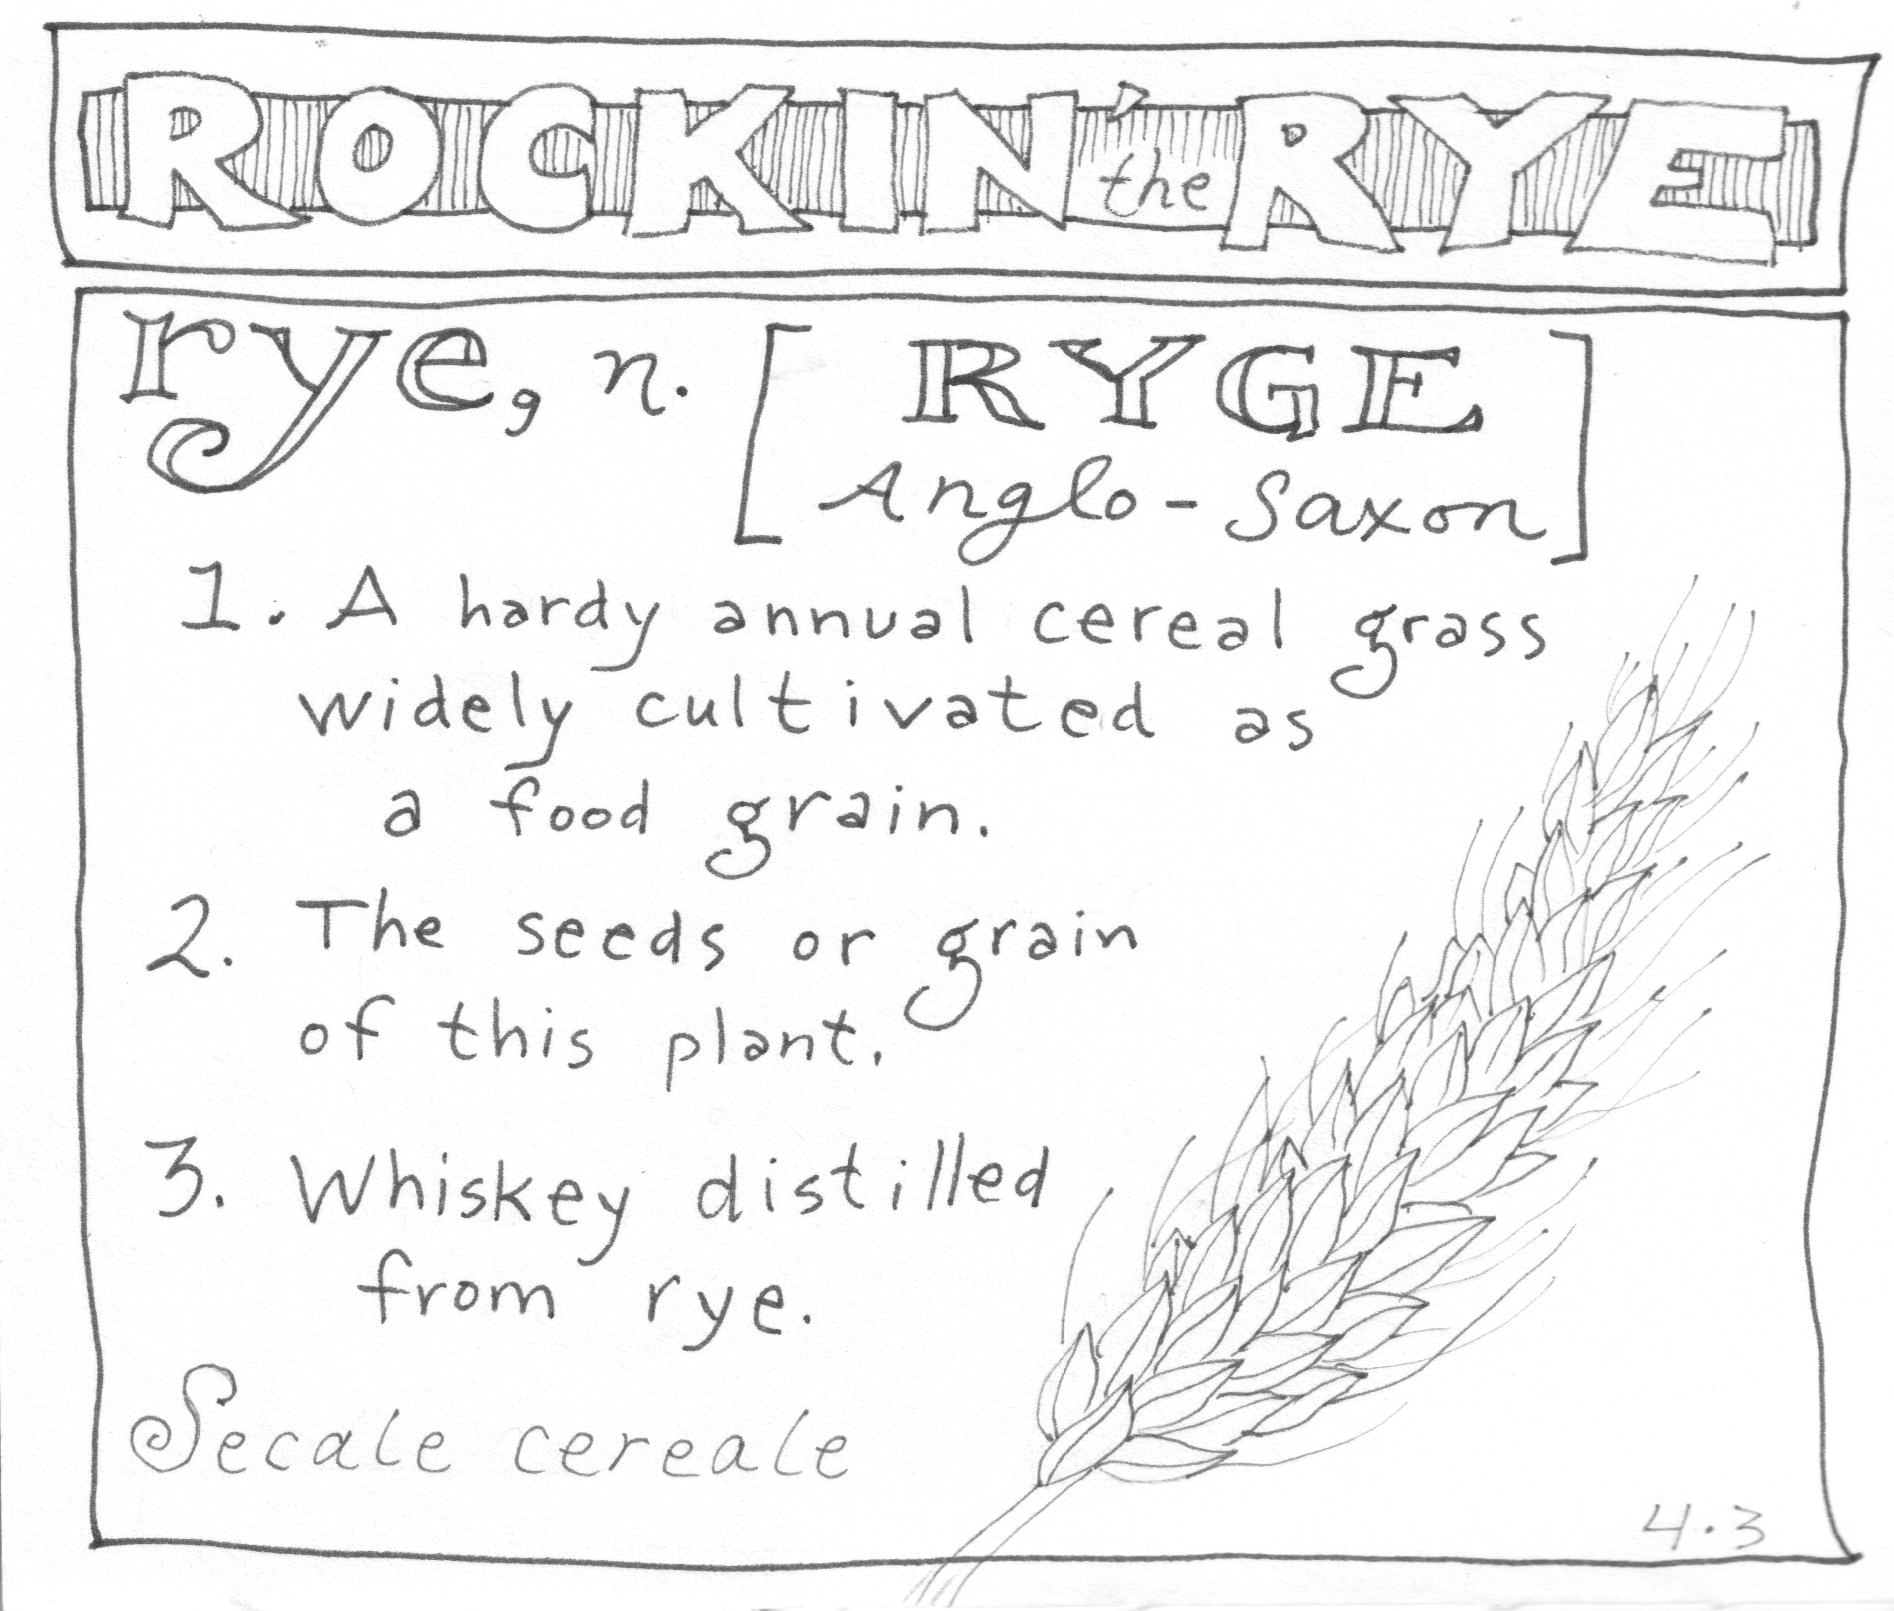 ROCKIN' the RYE
rye, n. [RYGE
Anglo-Saxon]
1. A hardy annual cereal grass
widely cultivated as
a food grain.
2. The seeds or grain
of this plant.
3. Whiskey distilled
from rye.
Secale cereale
4.3